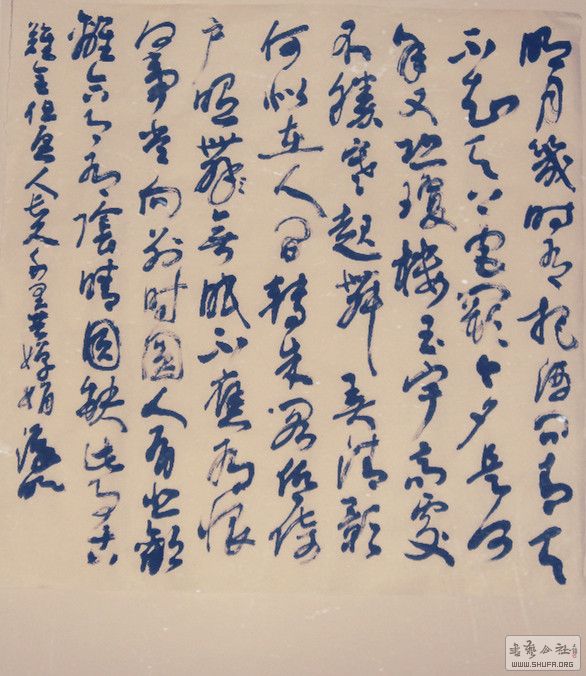 明月幾时有把酒问青天
不知天上宫闕今夕是何
年又恐瓊樓玉宇高處
不勝寒起舞弄清影
何似在人间轉朱阁低绮
户照無眠不應有恨
何事长向别时圆人有悲歡
離合月有陰晴圆缺此事古
難全但愿人长久千里共嬋娟
書藝公社
WWW.SHUFA.ORG